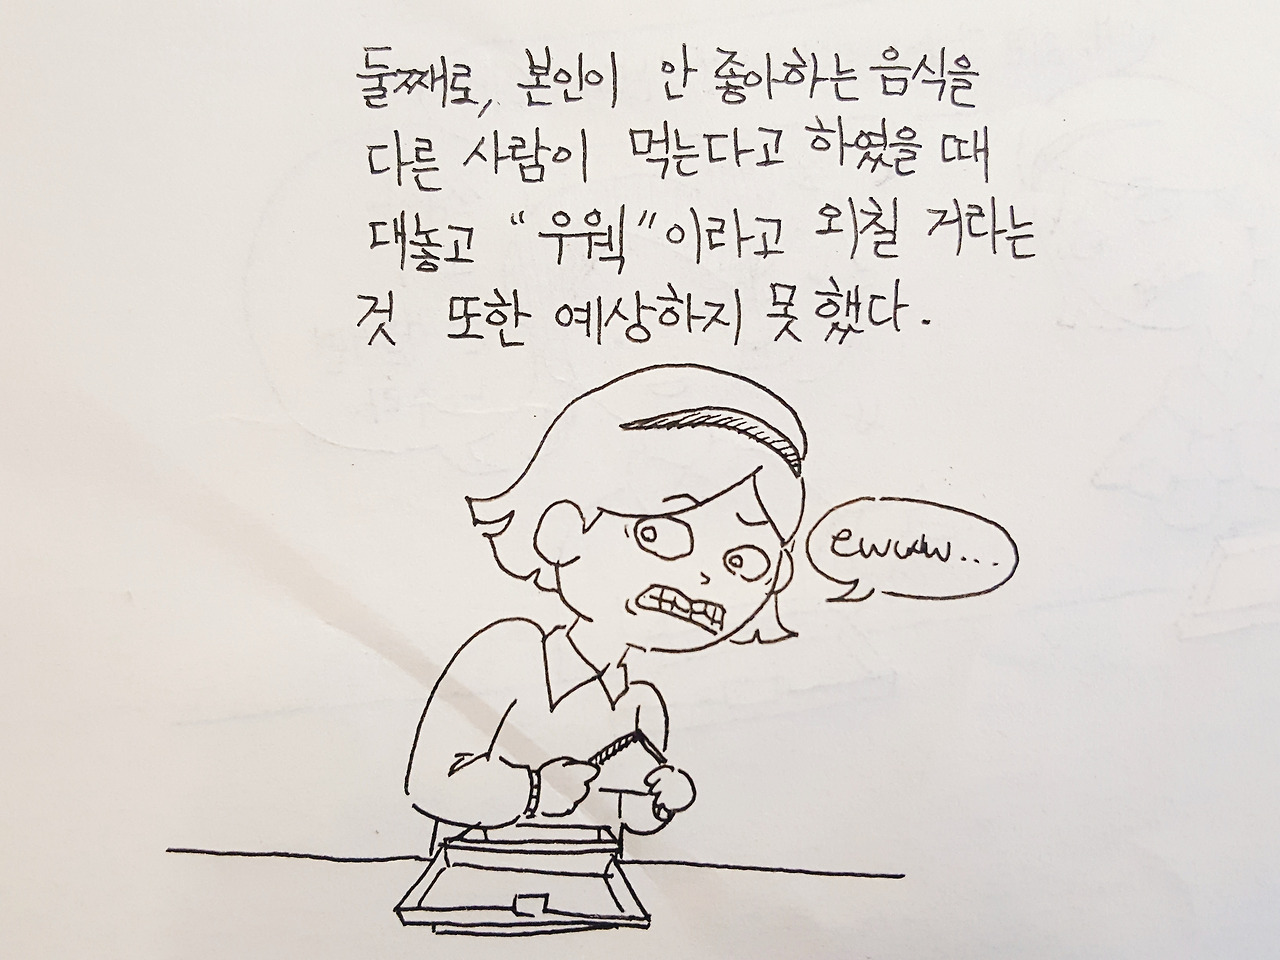 둘째로, 본인이 안 좋아하는 음식을
다른 사람이 먹는다고 하였을 때
대놓고 "우웩"이라고 외칠 거라는
것 또한 예상하지 못했다.
ewww...